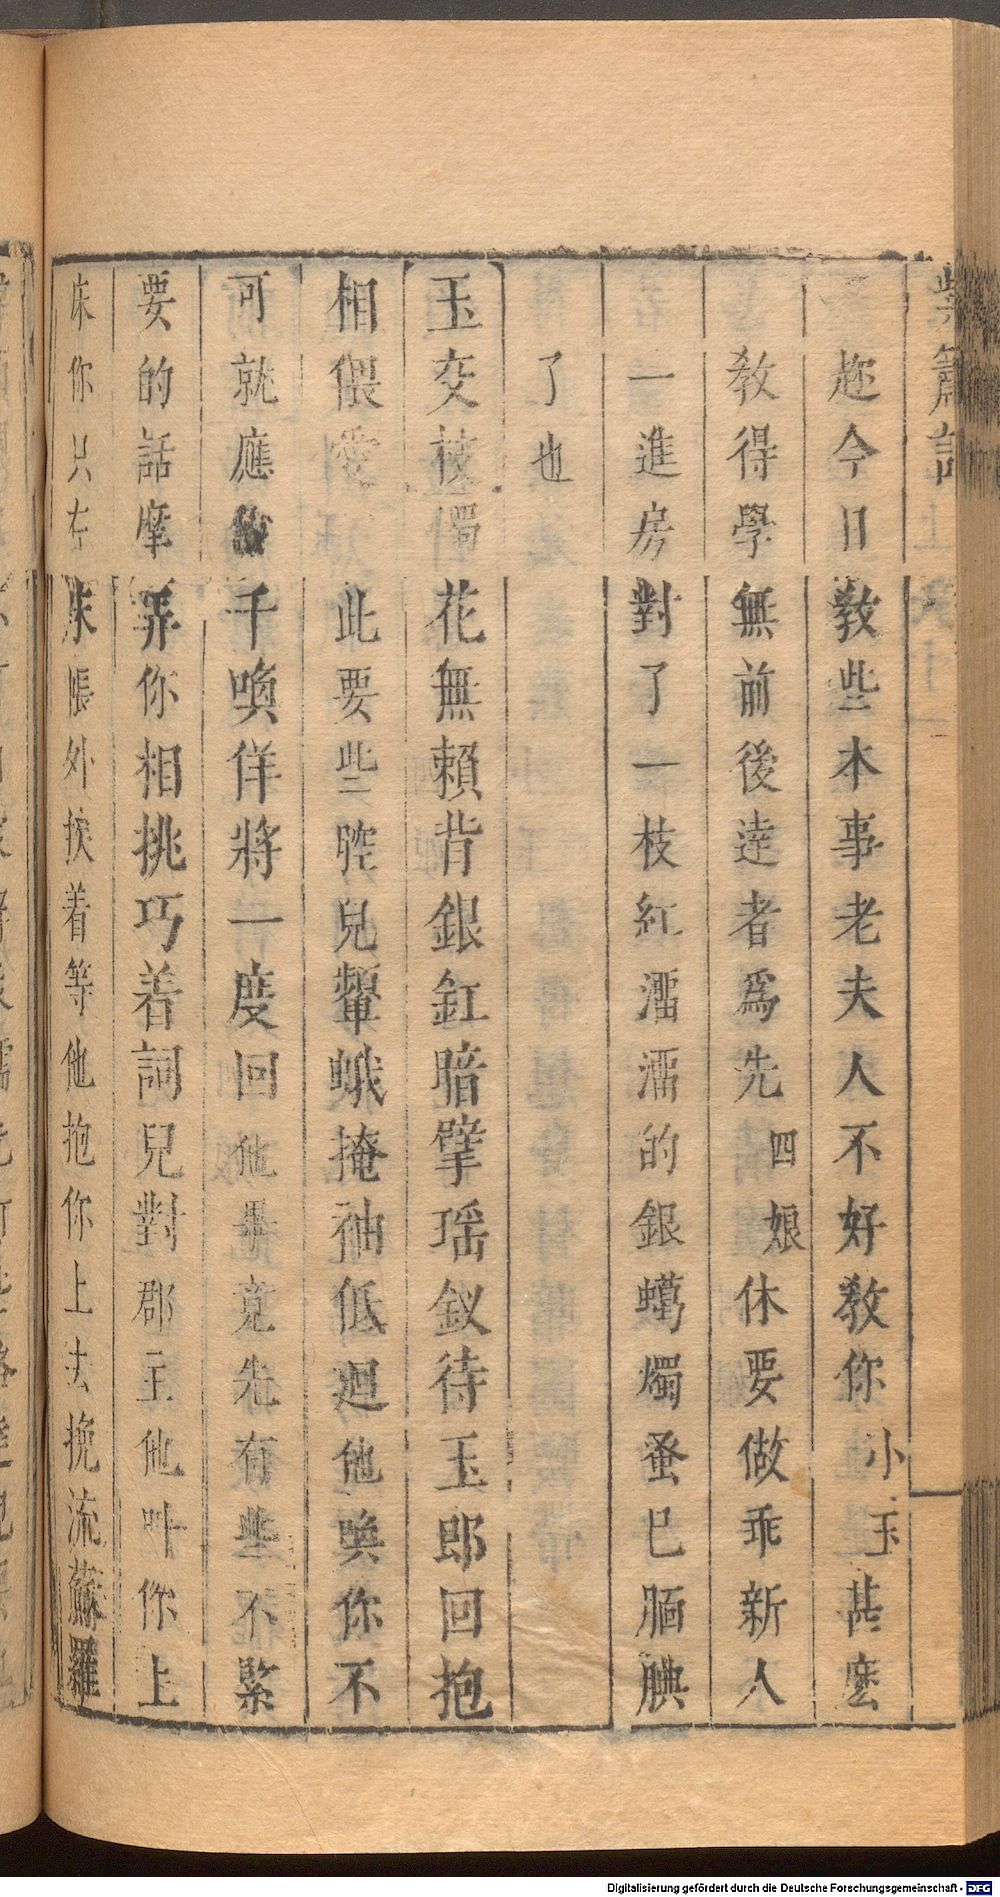 紫簫記 上
趂今日教些木事老夫人不好教你小玉甚麽
教得學無前後逹者爲先四娘休要做乖新人
一進房對了一枝紅濡濡的銀蠟燭蚤巳腼腆
了也
玉交枝燭花無賴背銀釭暗擘瑶釵待玉郎回抱
相偎愛此要些腔兒顰蛾掩袖低迴他喚你不
可就應千喚佯將一度回他畢竟先有些不緊
要的話摩弄你相挑巧着詞兒對郡主他叫你上
床你只在床帳外挨着等他抱你上去挽流蘇羅
Digitalisierung gefördert durch die Deutsche Forschungsgemeinschaft - DFG